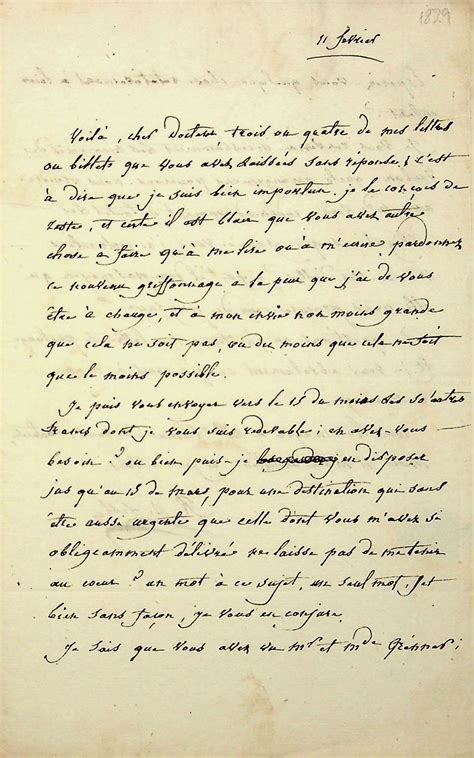 1829
11 février
Voilà, cher Docteur trois ou quatre de mes lettres
ou billets que vous avez laissés sans réponse ; c'est
à dire que je suis bien importun. je le conçois de
reste, et certe il est clair que vous avez autre
chose à faire qu'à me lire ou à m'écrire. pardonnez
ce nouveau griffonnage à la peur que j'ai de vous
être à charge, et à mon envie non moins grande
que cela ne soit pas, ou du moins que cela ne soit
que le moins possible.
Je puis vous envoyer vers le 15 du mois les
francs dont je vous suis redevable ; en avez-vous
besoin ? ou bien puis-je en disposer
jusqu'au 15 de mars, pour une destination qui sans
être aussi urgente que celle dont vous m'avez si
obligeamment délivré ne laisse pas de me tenir
au cœur ? un mot à ce sujet, un seul mot, et
bien sans façon, je vous en conjure.
Je sais que vous avez vu mr et mde